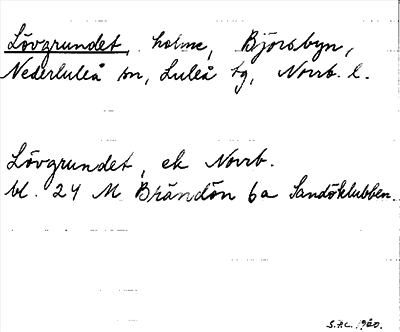 Lövgrundet, holme, Björsbyn,
Nederluleå sn, Luleå tg, Norrb. l.
Lövgrundet, ek Norrb.
bl. 24 M Brändön 6a Sandöklubben.
S.P.C. 1960.